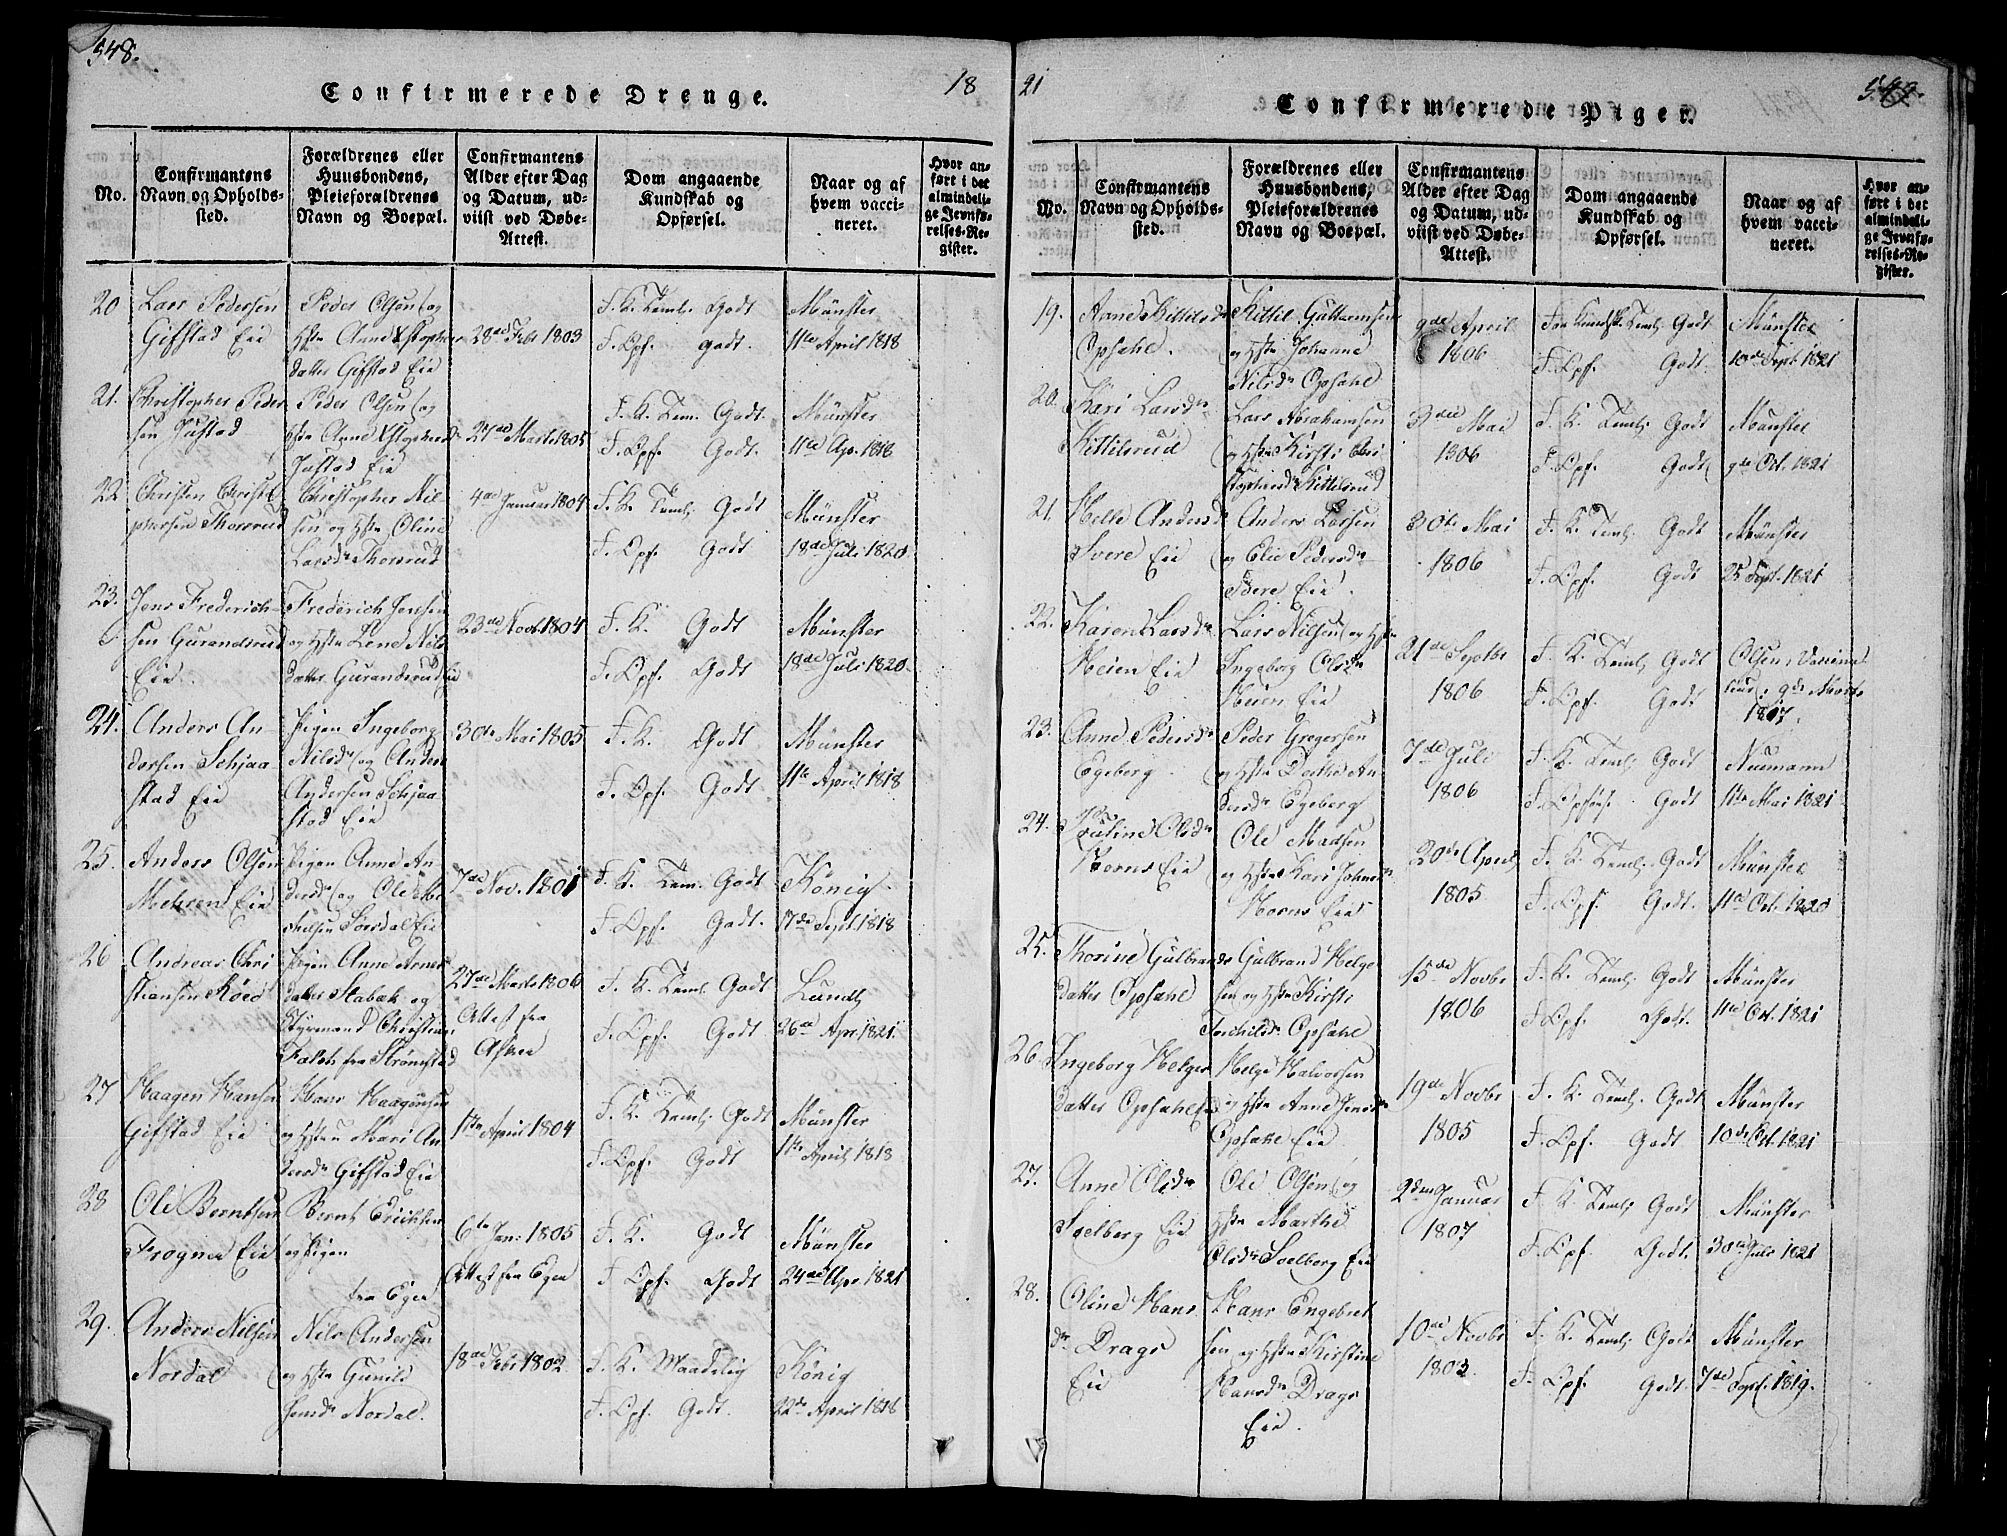 548.
Confirmerede Drenge.
18
No.
Confirmantens
Navn og Opholds-
sted.
Forældrenes eller
Huusbondens,
Pleieforældrenes
Navn og Boepæl.
Confirmantens
Alder efter Dag
og Datum, ud-
viist ved Døbe-
Attest.
Dom angaaende
Kundskab og
Opførsel.
Naar og af
hvem vacci-
neret.
Hvor an-
ført i det
almindeli-
ge Jevnfø-
relses-Re-
gister.
20
Lars Pedersen
Gifstad Eie
Peder Olsen og
Anne
datter Gifstad Eie
28de Febr 1803
F. K. Teml. Godt
F. Opf. Godt.
Münster
11te April 1818
21.
Christopher Peder
sen Justad
Peder Olsen og
Anne
Justad Eie
27de Marts 1805
F. K. Tem. Godt.
F. Opf. Godt.
Münster
11te Apr. 1818
22
Christen Christo
phersen Thorsrud
Christopher Nil
sen og Oline
Larsdr Thorsrud
4de Januar 1804
F. K. Teml. Godt
F. Opf. Godt
Münster
18de Juli 1820
23.
Jens Frederich-
sen Gurandsrud
Eie
Frederich Jensen
og Lene Nils
datter Gurandsrud Eie
23de Novb. 1804
F. K. Godt
F. Opf. Godt
Münster
18de Juli 1820.
24.
Anders An-
dersen Schjaa
stad Eie
Pigen Ingeborg
Nilsdr og Anders
Andersen Schjaa
stad Eie
30te Mai 1805
F. K. Godt
F. Opf. Godt
Münster
11te April 1818
25.
Anders Olsen
Mehren Eie
Pigen Anne An
dersdr og Ole
Sørsdal Eie
7de Nov. 1801
F. K. Tem. Godt
F. Opf. Godt.
König.
17de Sept. 1818
26
Andreas Chri
stiansen Röed
Pigen Anne Arnes
datter Stabæk og
Styrmand Christian
Falch fra Strömstad
27de Marts 1806
Attest fra
Asker
F. K. Teml. Godt
F. Opf. Godt
Lundh
26de Apr. 1821.
27
Haagen Hansen
Gifstad Eie
Hans Haagensen
og Mari An
dersdr Gifstad Eie
April 1804
F. K. Teml. Godt
F. Opf. Godt
Münster
11te April 1818
28
Ole Berntsen
Frogner Eie
Bernt Erichsen
og Pigen
fra Eger
6te Jan. 1805
Attest fra Eger
F. K. Godt
F. Opf. Godt
Münster
24de Apr. 1821
29.
Anders Nilsen
Nordal
Nils Andersen
og Gunild
Nordal.
18de Febr 1802
F. K. Maadelig
F. Opf. Godt.
König
22de April 1818
21
549.
Confirmerede Piger.
No.
Confirmantens
Navn og Opholds-
sted.
Forældrenes eller
Huusbondens,
Pleieforældrenes
Navn og Boepæl.
Confirmantens
Alder efter Dag
og Datum, ud-
viist ved Døbe-
Attest.
Dom angaaende
Kundskab og
Opførsel.
Naar og af
hvem vacci-
neret.
Hvor an-
ført i det
almindeli-
ge Jevnfø-
relses-Re-
gister.
19.
Anne Kittilsdr
Opsahl.
Kittil Guttormsen
og Johanne
Nilsdr Opsahl
9de April
1806
For Kundsk. Teml. Godt
F. Opf. Godt.
Münster
10de Sept. 1821
20.
Kari Larsdr
Kittilsrud
Lars Abrahamsen
og Kirsti Chri
Kittilsrud
3die Mai
1806
F. K. Teml. Godt
F. Opf. Godt
Münster
9de Oct. 1821
21.
Helle Andersdr
Svere Eie
Anders Larsen
og Elie Pedersdr
Svere Eie.
30te Mai
1806
F. K. Teml. Godt
F. Opf. Godt
Münster
25 Sept. 1821
22.
Karen Larsdr
Heien Eie
Lars Nilsen og
Ingeborg Olsdr
Heien Eie
21de Septbr
1806
F. K. Teml. Godt
F. Opf. Godt
Olsen, Vaccina
teur, 9de Marts
1817.
23.
Anne Pedersdr
Egeberg.
Peder Gregersen
og Dorthe An
dersdr Egeberg
7de Juli
1806
F. K. Teml. Godt
F. Opförs. Godt
Neumann
11te Mai 1821
24.
Olsdr
Horns Eie
Ole Madsen
og Kari
Horns Eie
20de April
1805
F. K. Teml. Godt
F. Opf. Godt.
Münster
11te Oct. 1820
25.
Thorine Gulbrands
datter Opsahl
Gulbrand Helge
sen og Kirsti
Torchildsdr Opsahl
15de Novbr
1806
F. K. Teml. Godt
F. Opf. Godt.
Münster
11te Oct. 1821
26.
Ingeborg Helges
datter Opsahl Eie
Helge Halvorsen
og Anne Jensdr
Opsahl Eie
19de Novbr
1805
F. K. Teml. Godt
F. Opf. Godt
Münster
10de Oct. 1821
27.
Anne Olsdr
Soelberg Eie
Ole Olsen og
Marthe
Olsdr Soelberg Eie
2den Januar
1807
F. K. Teml. Godt
F. Opf. Godt.
Münster
30te Juli 1821
28.
Oline Hans
dr Drags
Eie
Hans Engebret
sen og Kirstine
Hansdr Drags
Eie.
10de Novbr
1803
F. K. Teml. Godt
F. Opf. Godt.
Münster
7de Sept. 1819.